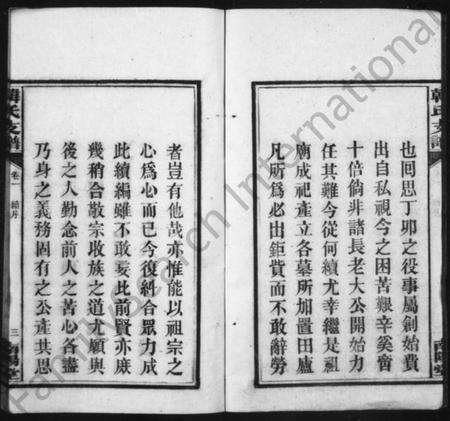 也回思丁卯之役事屬創始費
出自私視今之困苦艱辛奚啻
十倍倘非諸長老大公開始力
任其難今從何續尤幸繼是祖
廟成祀產立各墓所加置田廬
凡所爲必出鉅貲而不敢辭勞
者豈有他哉亦惟能以祖宗之
心爲心而已今復糾合眾力成
此續編雖不敢妄比前賢亦庶
幾稍合敬宗收族之道尤願與
後之人勤念前人之苦心各盡
乃身之義務固有之公產共思
韓氏支譜
卷一
三
南陽堂
韓氏支譜
南陽堂
FamilySearch International